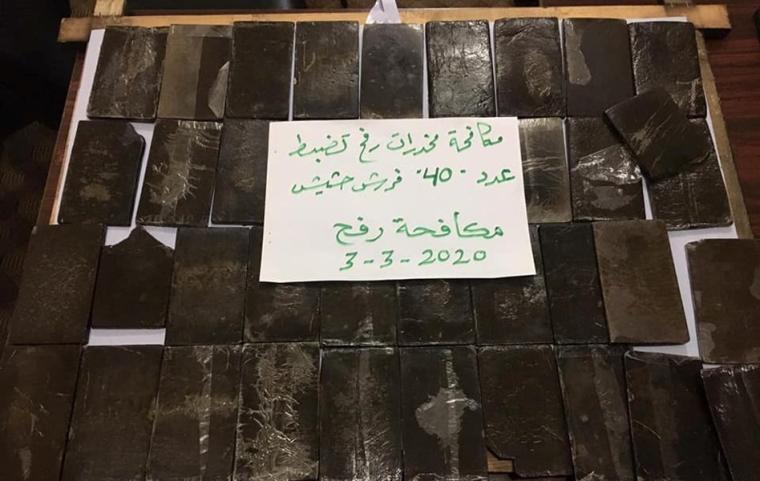 مكافحة مخدرات رفح تضبط
عدد "40" فرش حشيش
مكافحة رفح
3-3-2020